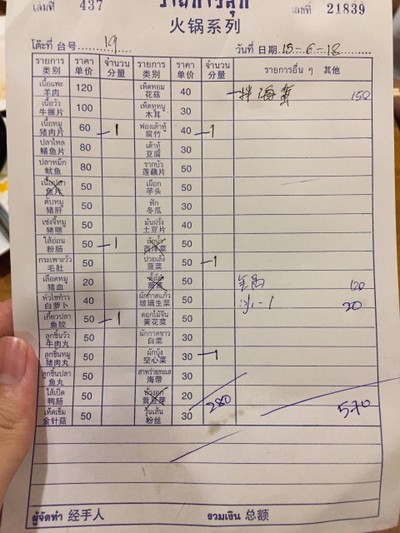 เล่มที่ 437 รายการสุกี้ เลขที่ 21839
火锅系列
โต๊ะที่ 台号 19 วันที่ 日期 15-6-18
รายการ ราคา จำนวน รายการ ราคา จำนวน รายการอื่น ๆ 其他
类别 单价 分量 类别 单价 分量
เนื้อแพะ 120 เห็ดหอม 40 拌海蜇 150
羊肉 花菇
เนื้อวัว 100 เห็ดหูหนู 30
牛擓片 木耳
เนื้อหมู 60 1 ฟองเต้าหู้ 40 1
猪肉片 腐竹
ปลาไหล 80 เต้าหู้
鳝鱼片 豆腐
ปลาหมึก 80 รากบัว 50
鱿鱼 莲藕片
เนื้อปลา 50 เผือก 50
鱼片 芋头
ตับหมู 50 ฟัก 30
猪肝 冬瓜
เซ่งจี๊หมู 50 มันฝรั่ง 40
猪腰 土豆片
ไส้อ่อน 50 1 ผักน้ำ 50
粉肠 西洋菜
กระเพาะวัว 50 ปวยเล้ง 50 1
毛肚 菠菜
เลือดหมู 20 50 120
猪血
หัวไชเท้า 40 ผักกาดแก้ว 40 1 20
白萝卜 玻璃生菜
เกี๊ยวปลา 50 1 ดอกไม้จีน 50
鱼胶 黄花菜
ลูกชิ้นวัว 50 ผักกาดขาว 30
牛肉丸 白菜
ลูกชิ้นหมู 50 ผักบุ้ง 30 1
猪肉丸 空心菜
ลูกชิ้นปลา 50 สาหร่ายทะเล 30
鱼丸 海带
ไส้เป็ด 50 20 280 570
鸭肠 黄豆芽
เห็ดเข็ม 50 วุ้นเส้น 30
金针菇 粉丝
ผู้จัดทำ 经手人 รวมเงิน 总额